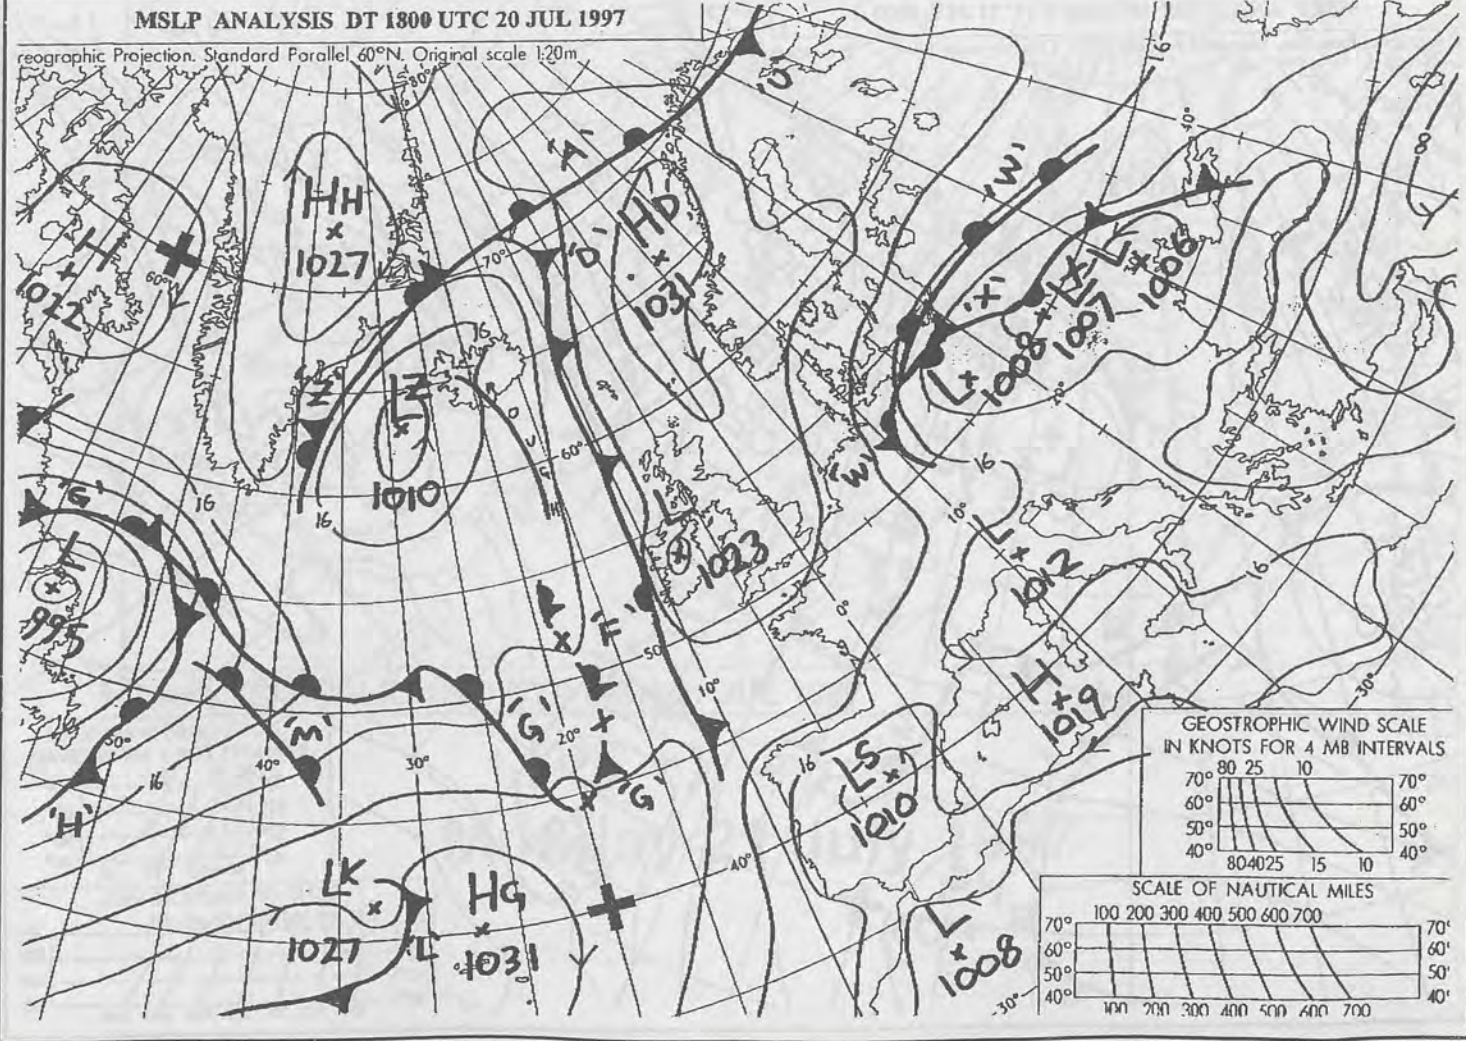 MSLP ANALYSIS DT 1800 UTC 20 JUL 1997
reographic Projection. Standard Parallel 60°N. Original scale 1:20m
80°
16
8
40°
'A'
'W'
HH
1027
HD
1031
H
1022
60°
70°
'D'
'X'
LX
L
1006
1007
1008
L
'Z'
LZ
1010
16
16
60°
'W'
16
10°
'G'
16
L
1023
L
1012
16
L
995
0°
'F'
50°
10°
30°
'G'
20°
'M'
H
1019
50°
40°
30°
16
'H'
'G'
16
LS
1010
40°
LK
1027
'L'
HG
1031
L
1008
30°
GEOSTROPHIC WIND SCALE
IN KNOTS FOR 4 MB INTERVALS
80 25 10
70° 70°
60° 60°
50° 50°
40° 40°
80 40 25 15 10
SCALE OF NAUTICAL MILES
100 200 300 400 500 600 700
70° 70'
60° 60'
50° 50'
40° 40'
100 200 300 400 500 600 700